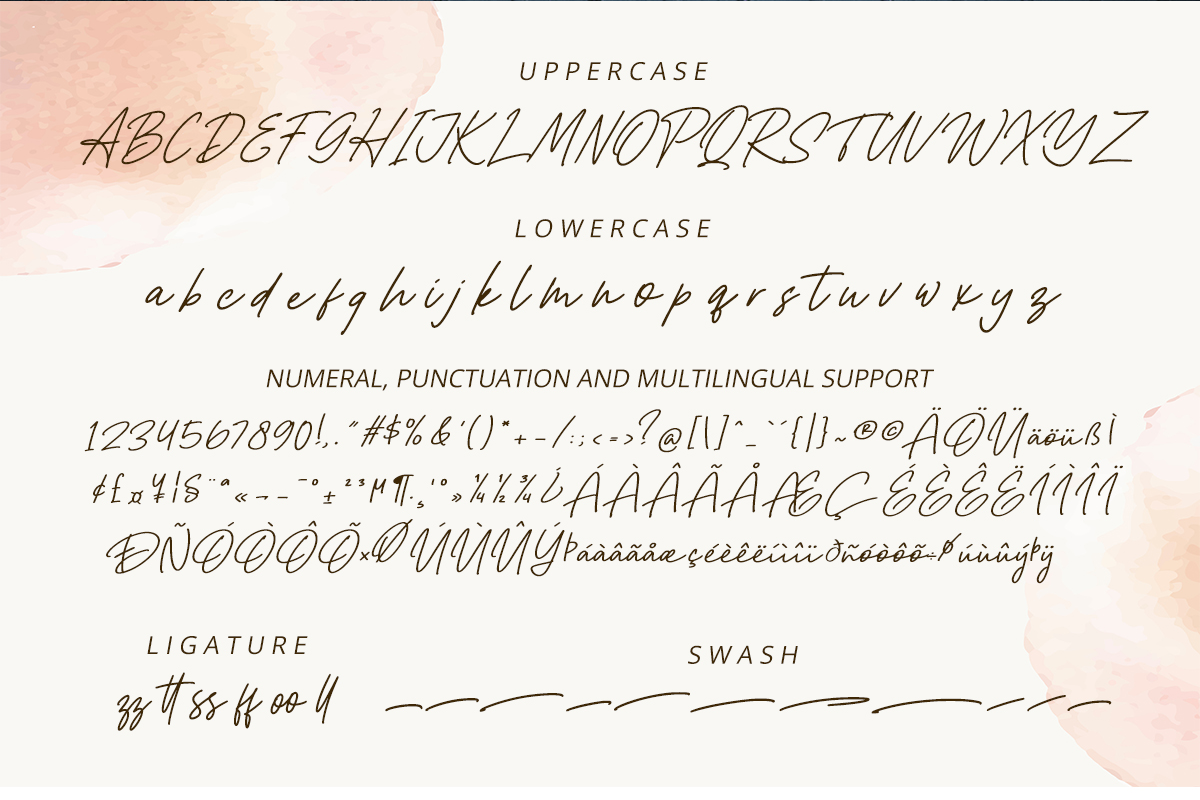 UPPERCASE
ABCDEFGHIJKLMNOPQRSTUVWXYZ
LOWERCASE
abcdefghijklmnopqrstuvwxyz
NUMERAL, PUNCTUATION AND MULTILINGUAL SUPPORT
1234567890!,."#$%&'()*+-/:;<=>?@[\]^_`´{|}~®©ÄÖÜäöüßÌ
¢£¤¥¦§¨ª«¬–¯°±²³µ¶·¸¹º»¼½¾¿ÁÀÂÃÅÆÇÉÈÊËÍÌÎÏ
ÐÑÓÒÔÕ×ØÚÙÛÝÞáàâãåæçéèêëíìîïðñóòôõ÷øúùûýþÿ
LIGATURE
SWASH
zz tt ss ff oo ll